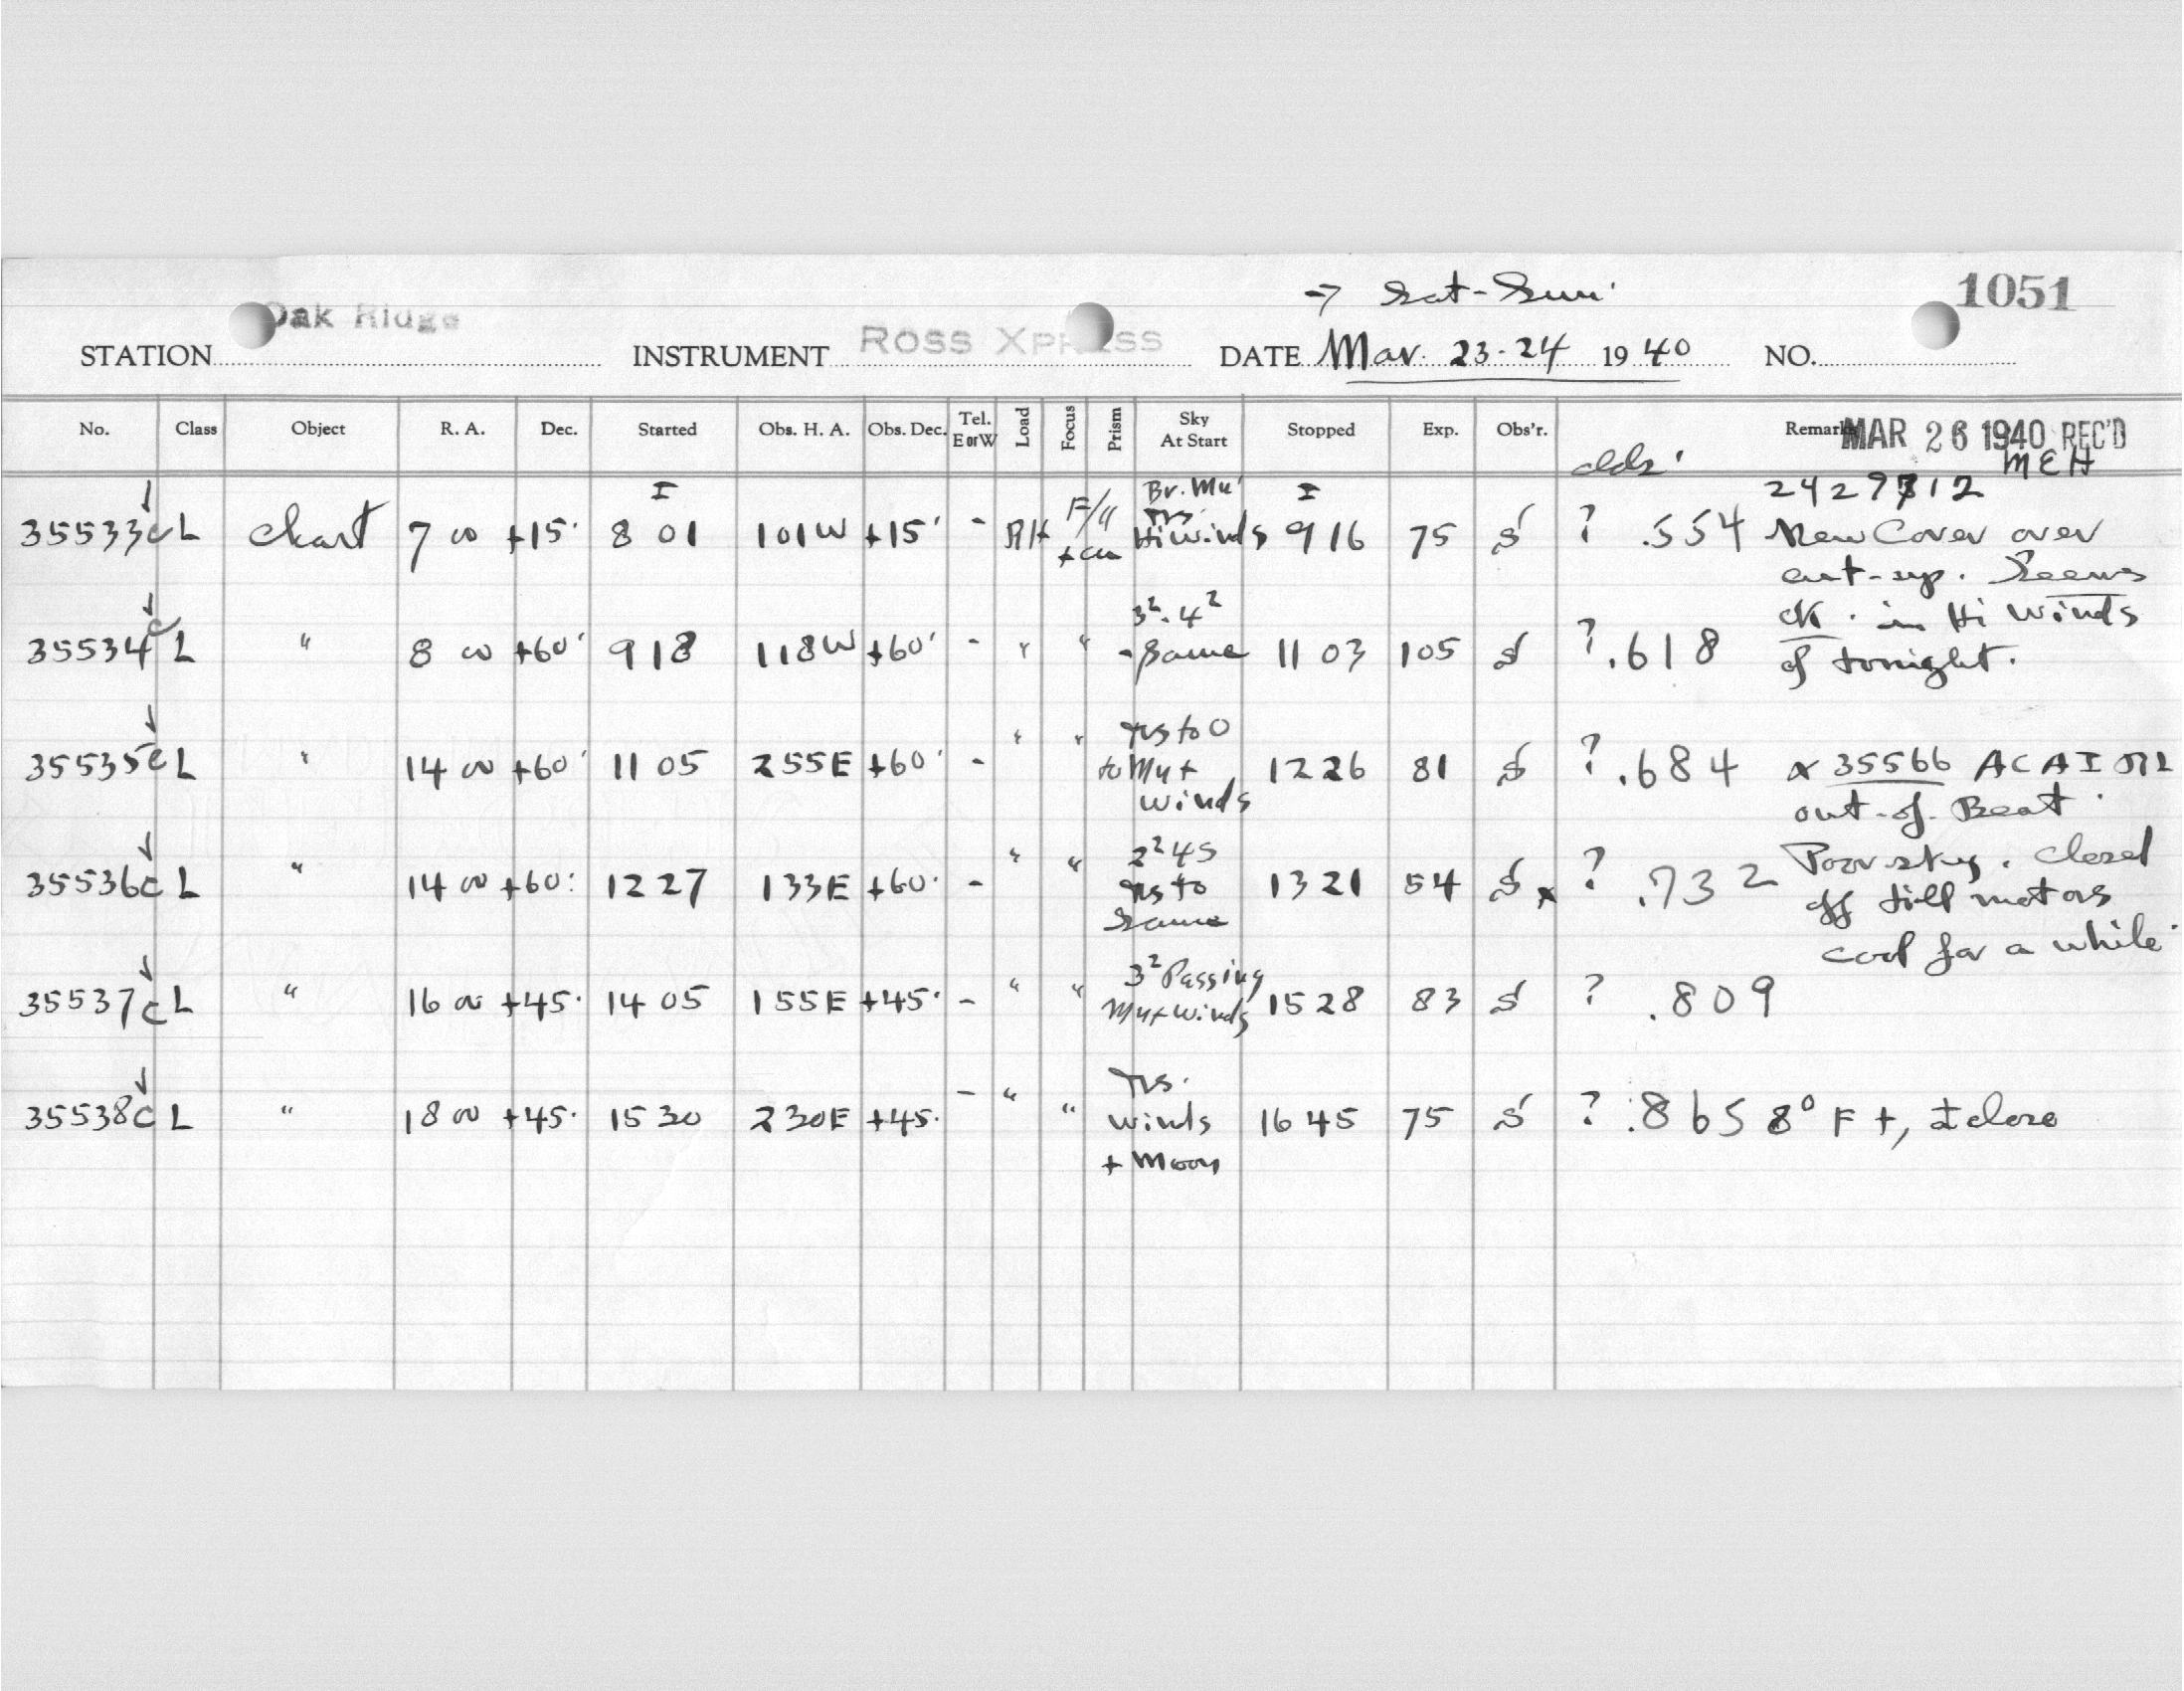 → Sat-Sun. 1051
Oak Ridge
STATION INSTRUMENT ROSS XPRESS DATE Mar. 23-24 1940 NO.
No. Class Object R. A. Dec. Started Obs. H. A. Obs. Dec. Tel. E or W Load Focus Prism Sky At Start Stopped Exp. Obs'r. Remarks MAR 26 1940 REC'D
MEH
I Br. Mu I 2429712
35533c L Chart 7 00 +15° 8 01 101W +15° - RH F/" Hi winds 9 16 75 S ? .554 New Cover over
cut-up. Seems
3² - 4² ok. in Hi Winds
35534c L " 8 00 +60° 9 18 118W +60° - " " -Same 11 03 105 S ? .618 of tonight.
trs to 0
35535c L " 14 00 +60° 11 05 255E +60° - " " to Mu + 12 26 81 S ? .684 x 35566 ACAI
winds out-of-Beat.
2² 45 Poor sky. closed
35536c L " 14 00 +60° 12 27 133E +60° - " " trs to 13 21 54 S x ? .732 off till motors
Same cool for a while.
3² Passing
35537c L " 16 00 +45° 14 05 155E +45° - " " Mu + winds 15 28 83 S ? .809
trs.
35538c L " 18 00 +45° 15 30 230E +45° - " " winds 16 45 75 S ? .865 8° F +, I close
+ moon